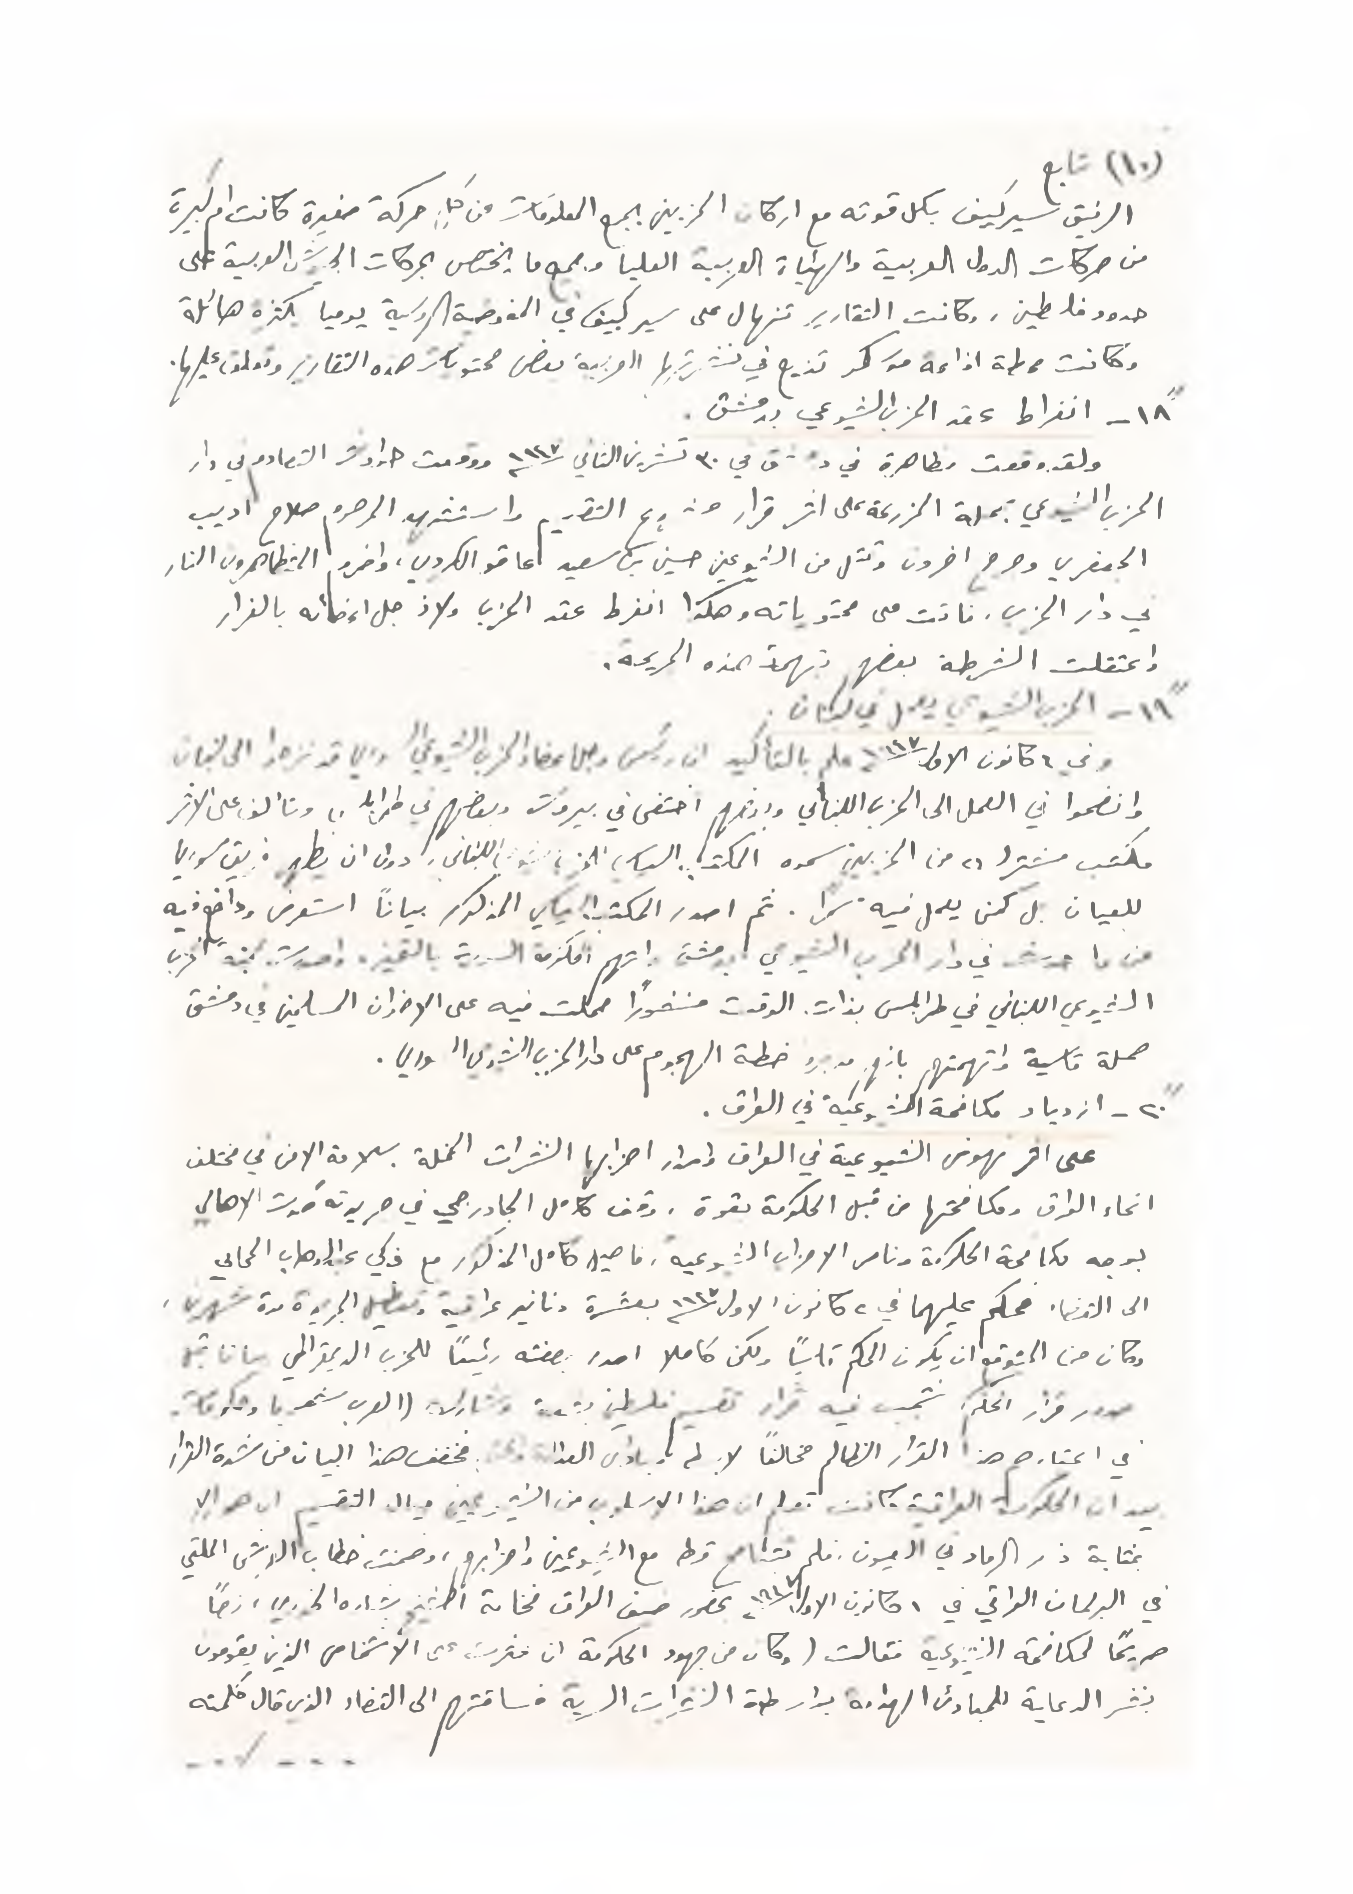 (١٠) تابع
الرفيق سيركييف بكل قوته مع اركان الحزبيين بجمع المعلومات من كل حركة صغيرة كانت ام كبيرة
من حركات الدول العربية والهيئة العربية العليا وجميع ما يختص بحركات الجيوش العربية على
حدود فلسطين، وكانت التقارير تنهال على سيركييف في المفوضية الروسية يوميا بكثرة هائلة
وكانت محطة اذاعة موسكو تذيع في نشرتها العربية بعض محتويات هذه التقارير وتعلق عليها.
١٨ً- انفراط عقد الحزب الشيوعي بدمشق.
ولقد وقعت مظاهرة في دمشق في ٣٠ تشرين الثاني ١٩٤٧ ووقعت حوادث التصادم في دار
الحزب الشيوعي بمحلة المزرعة على اثر قرار مشروع التقسيم واستشهد المرحوم صلاح اديب
الجعفري وجرح اخرون وقتل من الشيوعيين حسين بن سعيد عاقو الكردي، واضرم المتظاهرون النار
في دار الحزب، فاتت على محتوياته وهكذا انفرط عقد الحزب ولاذ جل اعضائه بالفرار
واعتقلت الشرطة بعضهم بتهمة هذه الجريمة.
١٩ً- الحزب الشيوعي يعمل في لبنان.
وفي ٤ كانون الاول ١٩٤٧ علم بالتأكيد ان رئيس وجل اعضاء الحزب الشيوعي السوري قد نزحوا الى لبنان
وانضموا في العمل الى الحزب اللبناني وبعضهم اختفى في بيروت وبعضهم في طرابلس، وتألف على الاثر
مكتب مشترك من الحزبين سموه المكتب السياسي للحزب الشيوعي اللبناني، دون ان يظهر فريق سوريا
للعيان بل كمن يعمل فيه سرًا. ثم اصدر المكتب السياسي المذكور بيانًا استعرض ودافع فيه
عن ما حدث في دار الحزب الشيوعي بدمشق واتهم الحكومة السورية بالتحيز، واصدرت لجنة الحزب
الشيوعي اللبناني في طرابلس بذات الوقت منشورًا حملت فيه على الاخوان المسلمين في دمشق
حملة قاسية واتهمتهم بانهم مدبرو خطة الهجوم على دار الحزب الشيوعي السوري.
٢٠ً- ازدياد مكافحة الشيوعية في العراق.
على اثر نهوض الشيوعية في العراق واصدار احزابها النشرات المخلة بسلامة الامن في مختلف
انحاء العراق ومكافحتها من قبل الحكومة بقوة، وقف كامل الجادرجي في جريدته صوت الاهالي
بوجه مكافحة الحكومة وناصر الاحزاب الشيوعية، فاحيل كامل المذكور مع زكي عبد الوهاب المحامي
الى القضاء فحكم عليهما في ٢ كانون الاول ١٩٤٧ بعشرة دنانير عراقية وتعطيل الجريدة مدة شهرين،
وكان من المتوقع ان يكون الحكم قاسيًا ولكن كاملا اصدر بصفته رئيسًا للحزب الديمقراطي بيانا قبل
صدور قرار الحكم شجب فيه قرار تقسيم فلسطين بشدة وشارك (العرب شعوبا وحكومات)
في اعتبارهم هذا القرار الظالم مخالفًا لابسط مبادئ العدالة فخفف هذا البيان من شدة القرار
بيد ان الحكومة العراقية كانت تعلم ان هذا الاسلوب من الشيوعيين حيال التقسيم ان هو الا
بمثابة ذر الرماد في العيون، فلم تتسامح قط مع الشيوعيين واحزابهم، وضمنت خطاب العرش الملقى
في البرلمان العراقي في ١ كانون الاول ١٩٤٧ بحضور ضيف العراق فخامة الشيخ بشاره الخوري، نصًا
صريحًا لمكافحة الشيوعية فقالت (وكان من جهود الحكومة ان عثرت على الأشخاص الذين يقومون
بنشر الدعاية للمبادئ الهدامة بواسطة النشرات السرية فساقتهم الى القضاء الذي قال كلمته